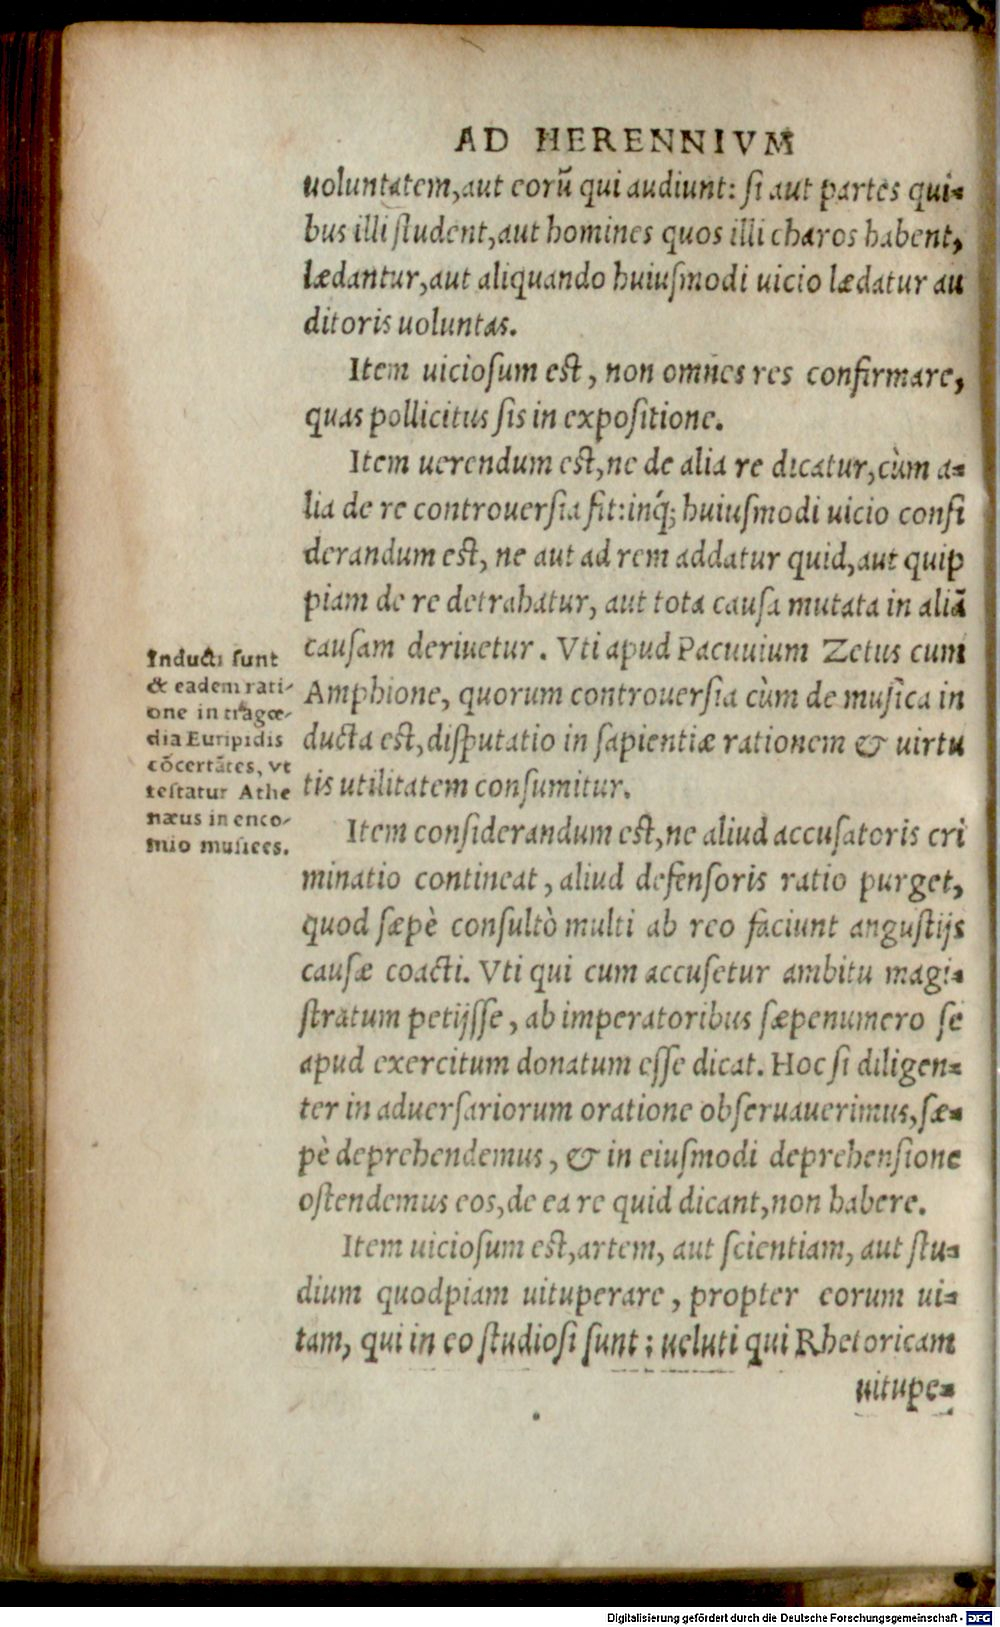 AD HERENNIVM
uoluntatem, aut eorũ qui audiunt: si aut partes qui-
bus illi student, aut homines quos illi charos habent,
lædantur, aut aliquando huiusmodi uicio lædatur au
ditoris uoluntas.
Item uiciosum est, non omnes res confirmare,
quas pollicitus sis in expositione.
Item uerendum est, ne de alia re dicatur, cùm a-
lia de re controuersia sit: inq́; huiusmodi uicio consi
derandum est, ne aut ad rem addatur quid, aut quip
piam de re detrahatur, aut tota causa mutata in aliã
causam deriuetur. Vti apud Pacuuium Zetus cum
Amphione, quorum controuersia cùm de musica in
ducta est, disputatio in sapientiæ rationem & uirtu
tis utilitatem consumitur.
Inducti sunt
& eadem rati-
one in tragœ-
dia Euripidis
cõcertãtes, vt
testatur Athe
næus in enco-
mio musices.
Item considerandum est, ne aliud accusatoris cri
minatio contineat, aliud defensoris ratio purget,
quod sæpè consultò multi ab reo faciunt angustijs
causæ coacti. Vti qui cum accusetur ambitu magi-
stratum petijsse, ab imperatoribus sæpenumero se
apud exercitum donatum esse dicat. Hoc si diligen-
ter in aduersariorum oratione obseruauerimus, sæ-
pè deprehendemus, & in eiusmodi deprehensione
ostendemus eos, de ea re quid dicant, non habere.
Item uiciosum est, artem, aut scientiam, aut stu-
dium quodpiam uituperare, propter eorum ui-
tam, qui in eo studiosi sunt: ueluti qui Rhetoricam
uitupe-
Digitalisierung gefördert durch die Deutsche Forschungsgemeinschaft - DFG